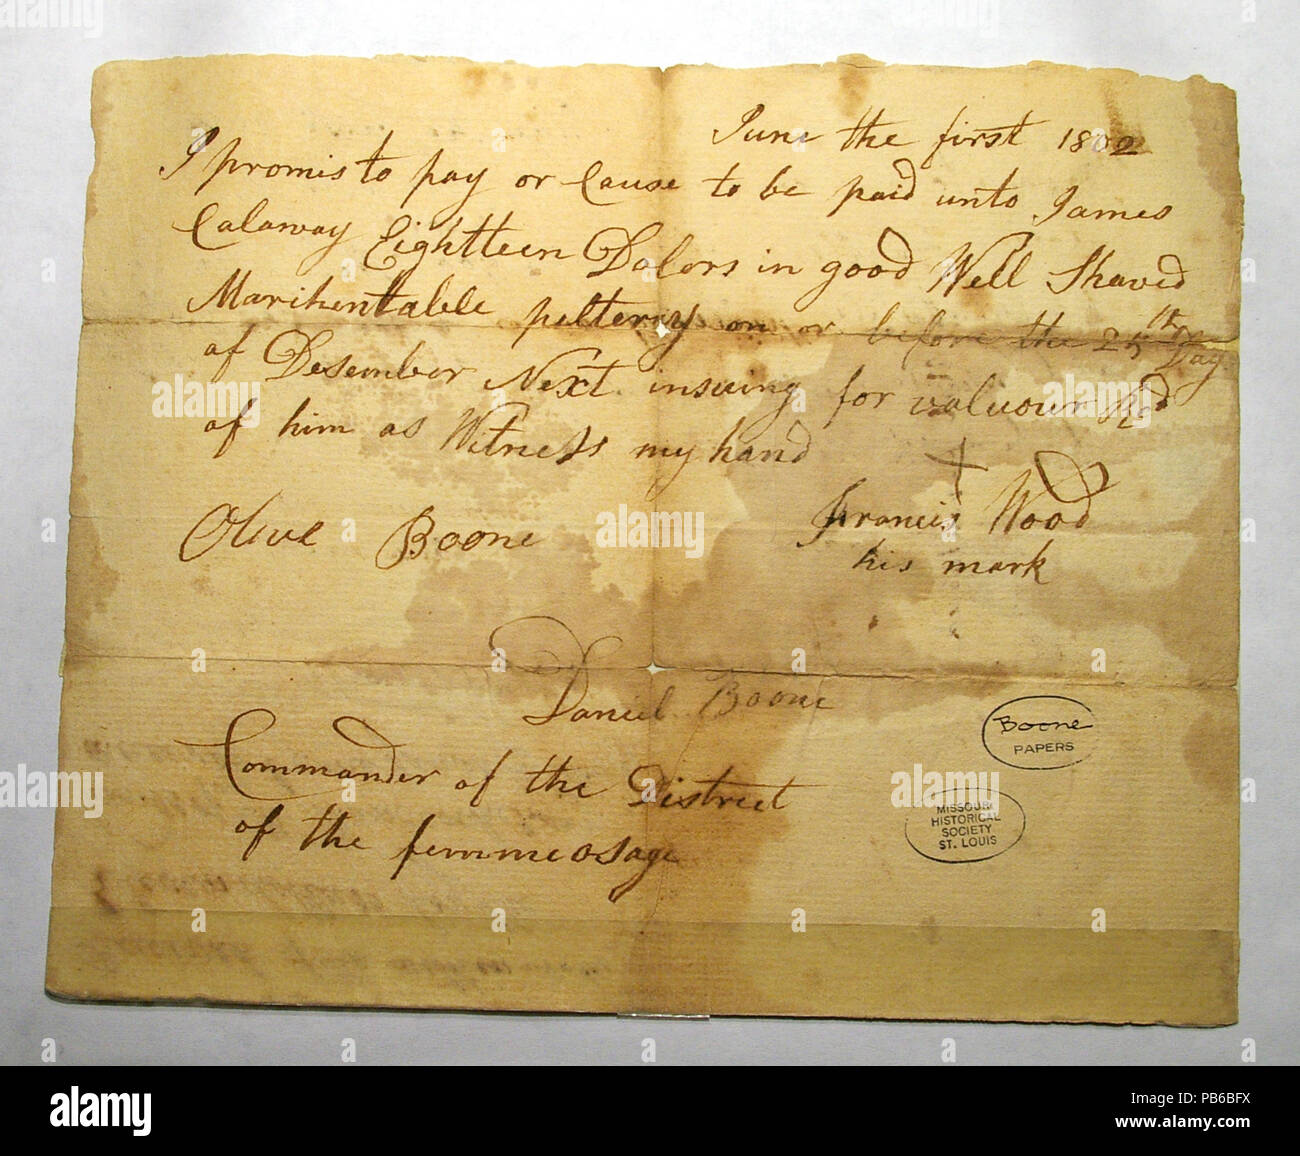 June the first 1802
I promis to pay or Cause to be paid unto James
Calaway Eightteen Dolors in good Well Shaved
Marikentable peltery on or before the 25th Day
of Desember Next insuing for valuour Rcd
of him as Witness my hand
Olive Boone
Francis Wood
his mark
Daniel Boone
Commander of the District
of the femmeosage
Boone
PAPERS
MISSOURI
HISTORICAL
SOCIETY
ST. LOUIS
alamy
PB6BFX
www.alamy.com